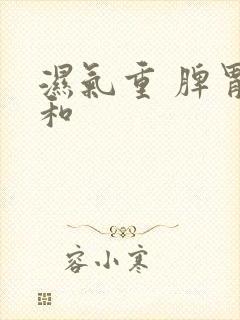 濕氣重 脾胃
和
容小寒